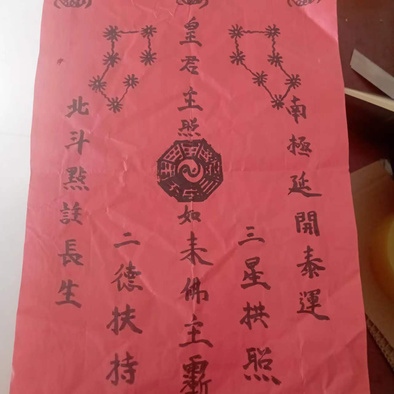 南極延開泰運
三星拱照
皇君主照
如来佛主
二德扶持
北斗點註長生